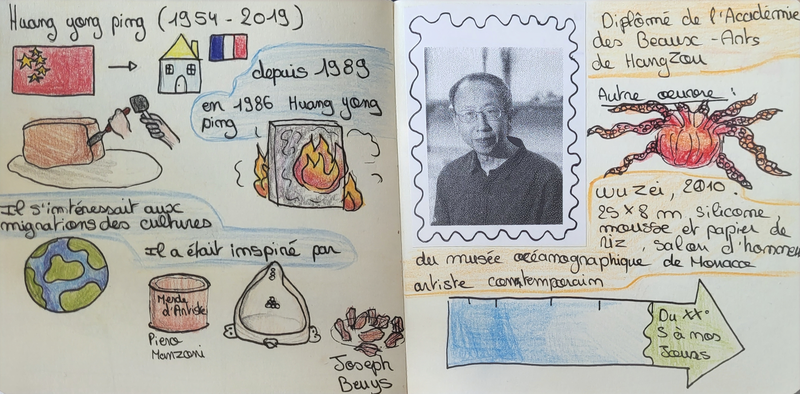 Huang yong ping (1954 - 2019)
depuis 1989
en 1986 Huang yong
ping
Il s'intéressait aux
migrations des cultures
Il a était inspiré par
Merde
d'Artiste
Piero
Manzoni
Joseph
Beuys
Diplômé de l'Académie
des Beaux - Arts
de HangZou
Autre oeuvre :
wu Zei, 2010.
25 x 8 m, silicone,
mousse et papier de
riz, salon d'honneur
du musée océanographique de Monaco
artiste contemporain
Du XX°
S à nos
Jours